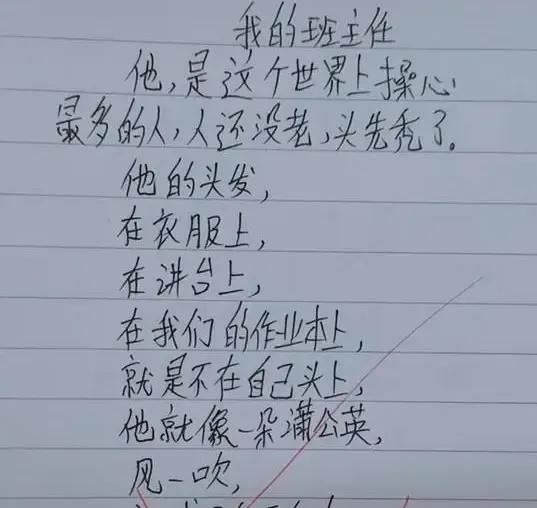 我的班主任
他,是这个世界上操心
最多的人,人还没老,头先秃了。
他的头发,
在衣服上,
在讲台上,
在我们的作业本上,
就是不在自己头上,
他就像一朵蒲公英,
风一吹,